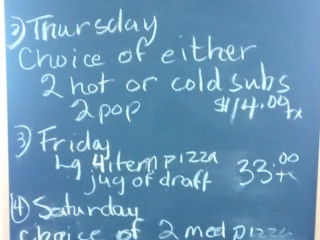 2) Thursday
Choice of either
2 hot or cold subs
2 pop $14.00 tx
3) Friday
Lg 4 item pizza 33.00 tx
jug of draft
4) Saturday
choice of 2 med pizza